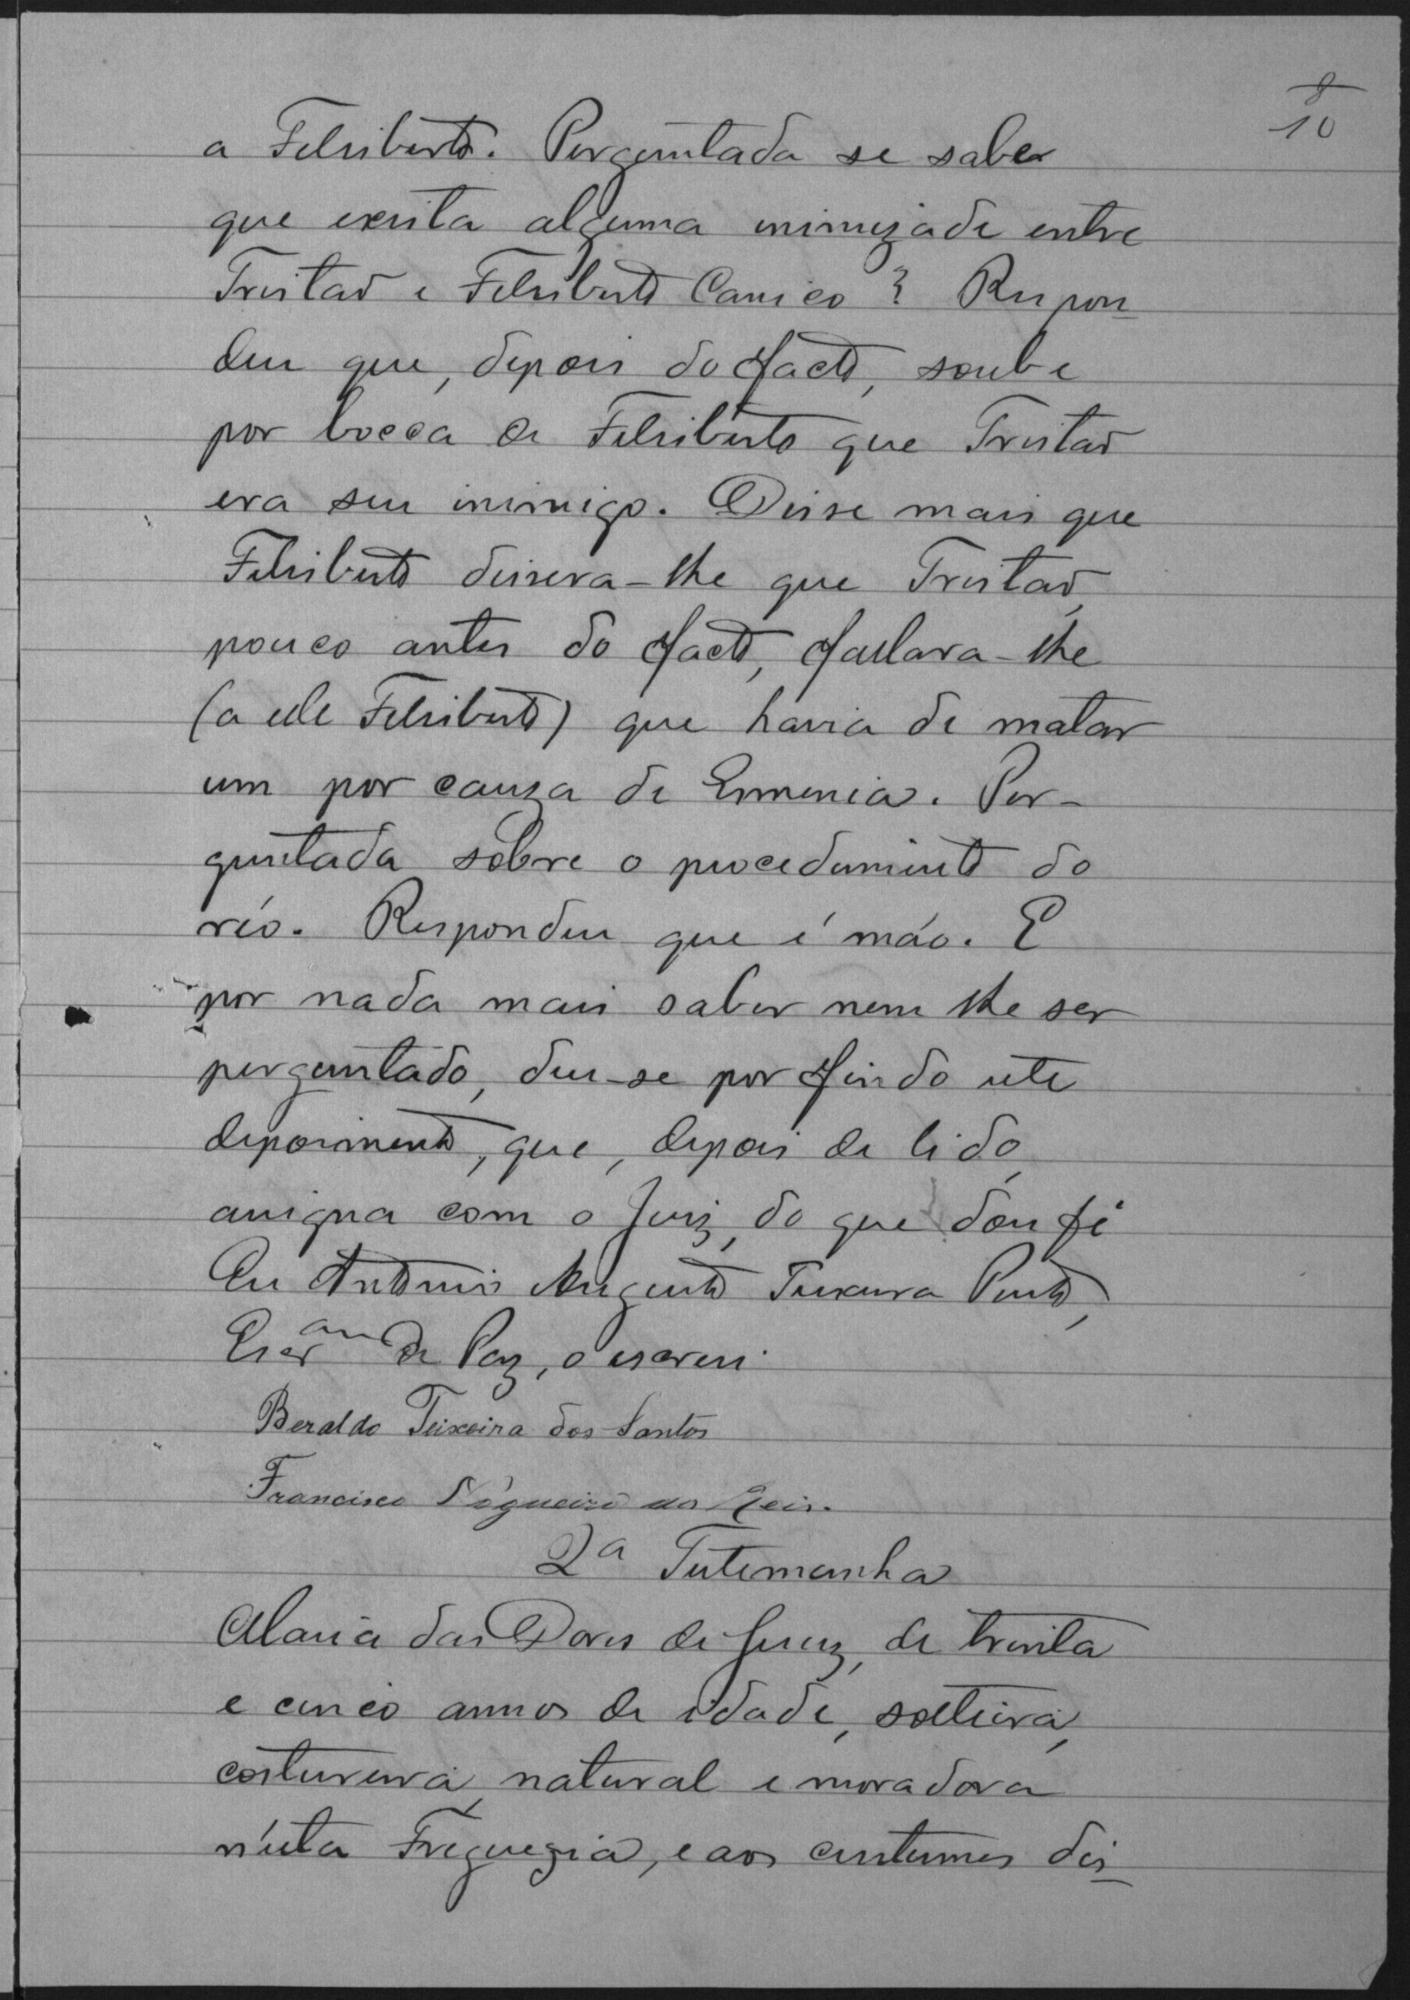 8
10
a Felisberto. Perguntada se sabe
que exista alguma inimizade entre
Tristão e Felisberto Canico? Respon-
deu que, depois do facto, soube
por bocca de Felisberto que Tristão
era seu inimigo. Disse mais que
Felisberto dissera-lhe que Tristão,
pouco antes do facto, fallara-lhe
(a elle Felisberto) que havia de matar
um por cauza de Ermenia. Per-
guntada sobre o procedimento do
réo. Respondeu que é máo. E
por nada mais saber nem lhe ser
perguntado, deu-se por findo este
depoimento, que, depois de lido,
assigna com o Juiz, do que dou fé
Eu Antonio Augusto Teixeira Pinto,
Escram de Paz, o escrevi.
Beraldo Teixeira dos Santos
Francisco Nogueira dos Reis.
2a Testemunha
Maria das Dores de Jesuz, de trinta
e cinco annos de idade, solteira,
costureira, natural e moradora
n'esta Freguezia, e aos custumes dis-